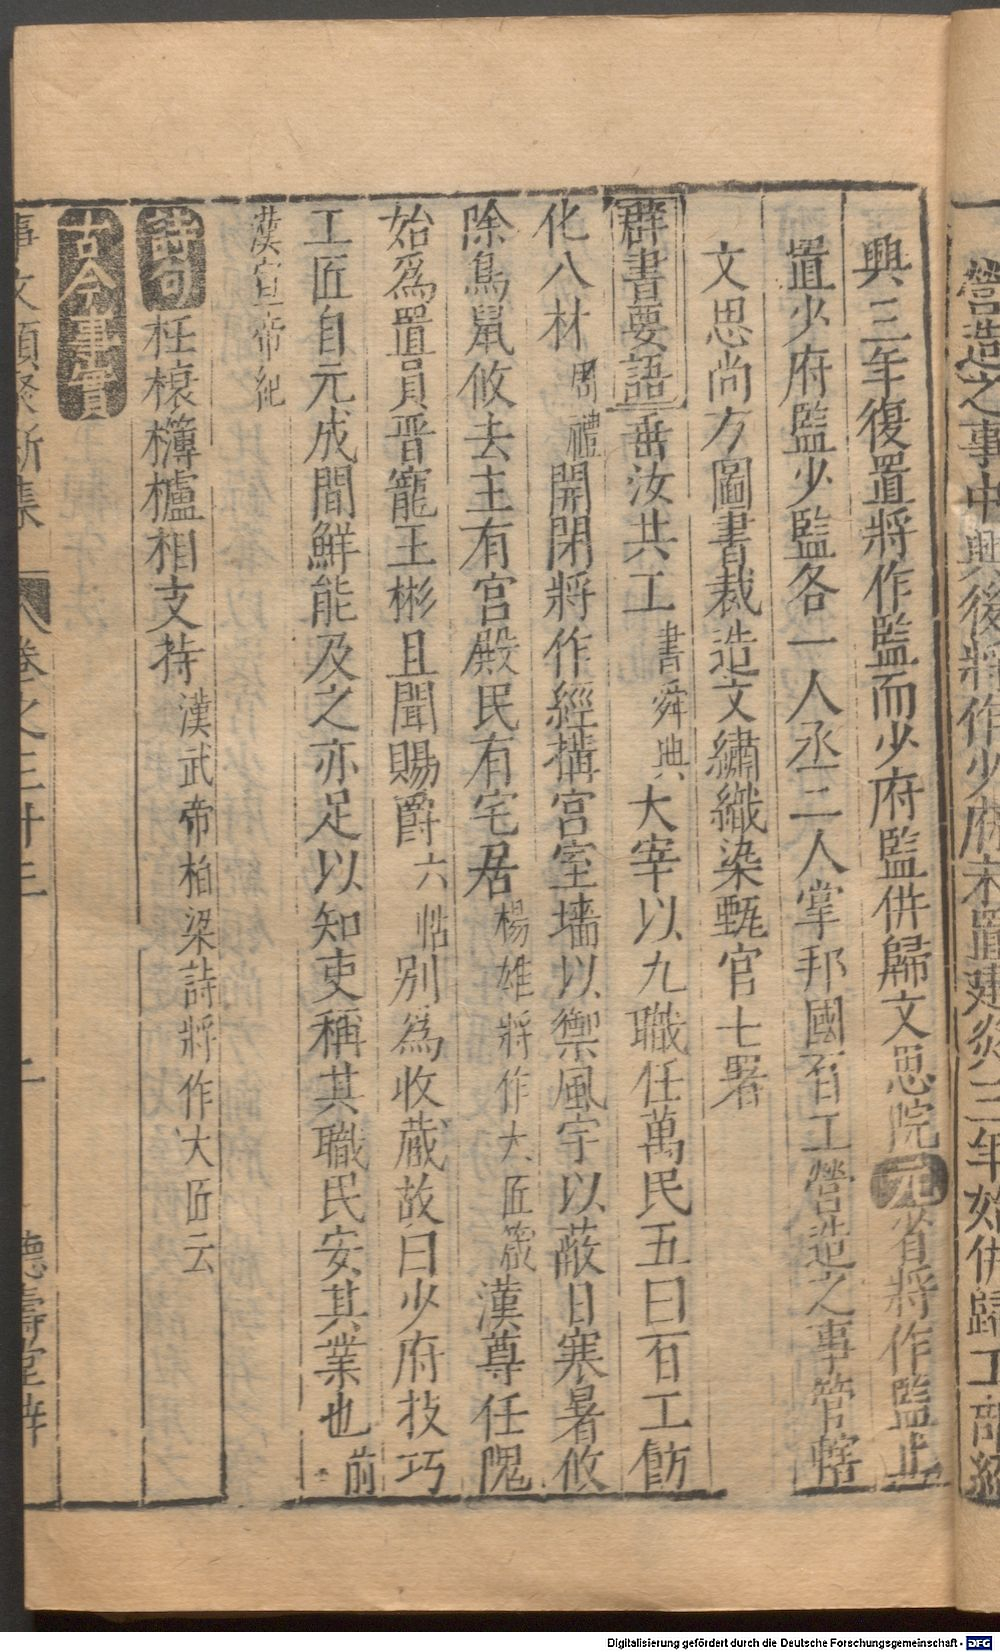 營造之事中興後將作少府未置建炎三年始併歸工部紹
興三年復置將作監而少府監併歸文思院元省將作監止
置少府監少監各一人丞二人掌邦國百工營造之事管轄
文思尚方圖書裁造文繡織染甄官七署
群書要語垂汝共工書舜典大宰以九職任萬民五曰百工飭
化八材周禮開閉將作經搆宫室墻以禦風宇以蔽日寒暑攸
除鳥鼠攸去主有宫殿民有宅居楊雄將作大匠箴漢尊任隗
始爲置員晋寵王彬且聞賜爵六帖别爲收藏故曰少府技巧
工匠自元成間鮮能及之亦足以知吏稱其職民安其業也前
漢宣帝紀
詩句枉橑欂櫨相支持漢武帝柏梁詩將作大匠云
古今事實
事文類聚新集 卷之三十三 二 德壽堂梓
Digitalisierung gefördert durch die Deutsche Forschungsgemeinschaft - DFG